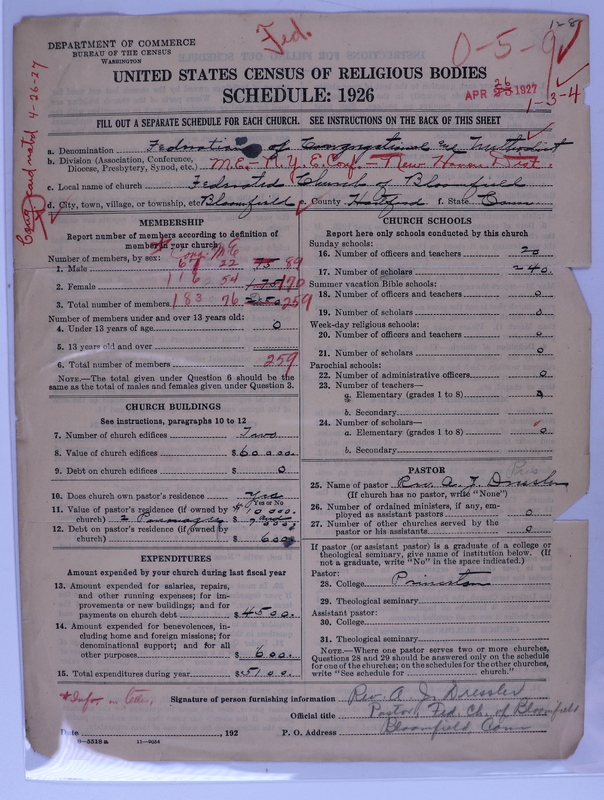 DEPARTMENT OF COMMERCE
BUREAU OF THE CENSUS
WASHINGTON
Fed.
0-5-9
128
UNITED STATES CENSUS OF RELIGIOUS BODIES
SCHEDULE: 1926
APR 26 1927
1-3-4
FILL OUT A SEPARATE SCHEDULE FOR EACH CHURCH. SEE INSTRUCTIONS ON THE BACK OF THIS SHEET
a. Denomination Federation of Congregational and Methodist
b. Division (Association, Conference, Diocese, Presbytery, Synod, etc.) M.E.-N.Y.E. Conf. - New Haven Dist.
c. Local name of church Federated Church of Bloomfield
d. City, town, village, or township, etc Bloomfield e. County Hartford f. State Conn
4-26-27
MEMBERSHIP
Report number of members according to definition of member in your church
Number of members, by sex: Cong. M.E.
1. Male 67 22 89
2. Female 116 54 170
3. Total number of members 183 76 259
Number of members under and over 13 years old:
4. Under 13 years of age 0
5. 13 years old and over
6. Total number of members 259
NOTE.—The total given under Question 6 should be the same as the total of males and females given under Question 3.
CHURCH BUILDINGS
See instructions, paragraphs 10 to 12
7. Number of church edifices Two
8. Value of church edifices $60000.
9. Debt on church edifices $ 0
10. Does church own pastor's residence Yes
Yes or No
11. Value of pastor's residence (if owned by church) 2 Parsonages $
12. Debt on pastor's residence (if owned by church) $ 600
EXPENDITURES
Amount expended by your church during last fiscal year
13. Amount expended for salaries, repairs, and other running expenses; for improvements or new buildings; and for payments on church debt $4500.
14. Amount expended for benevolences, including home and foreign missions; for denominational support; and for all other purposes $ 600.
15. Total expenditures during year $5100.
CHURCH SCHOOLS
Report here only schools conducted by this church
Sunday schools:
16. Number of officers and teachers 20
17. Number of scholars 240.
Summer vacation Bible schools:
18. Number of officers and teachers 0
19. Number of scholars 0
Week-day religious schools:
20. Number of officers and teachers 0
21. Number of scholars 0
Parochial schools:
22. Number of administrative officers 0
23. Number of teachers—
a. Elementary (grades 1 to 8) 0
b. Secondary
24. Number of scholars—
a. Elementary (grades 1 to 8) 0
b. Secondary
PASTOR
25. Name of pastor Rev. A. J. Dressler
(If church has no pastor, write "None")
26. Number of ordained ministers, if any, employed as assistant pastors 0
27. Number of other churches served by the pastor or his assistants 0
If pastor (or assistant pastor) is a graduate of a college or theological seminary, give name of institution below. (If not a graduate, write "No" in the space indicated.)
Pastor:
28. College Princeton
29. Theological seminary
Assistant pastor:
30. College
31. Theological seminary
NOTE.—Where one pastor serves two or more churches, Questions 28 and 29 should be answered only on the schedule for one of the churches; on the schedules for the other churches, write "See schedule for church."
*Infor in letter
Signature of person furnishing information Rev. A. J. Dressler
Official title Pastor, Fed. Ch. of Bloomfield
Date , 192 P. O. Address Bloomfield Conn
8-5518a 11-9034